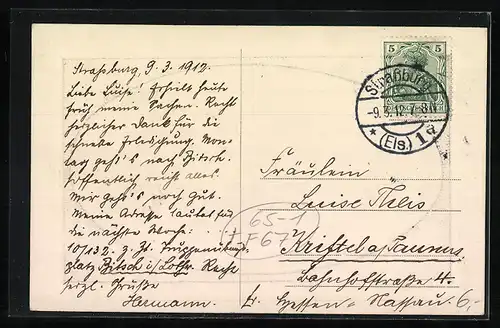 Straßburg 9.3.1912.
Liebe Luise! Erhielt heute
früh meine Sachen. Recht
herzlicher Dank für die
schnelle Erledigung. Mon-
tag geht's nach Bitsch.
Hoffentlich reicht alles.
Mir geht's noch gut.
Meine Adresse lautet für
die nächste Woche:
10/132. z. Zt. Truppenübungs-
platz Bitsch i/Lothr. Recht
herzl. Grüße
Hermann.
5 5
Straßburg
-9.3.12. 7-8N
* (Els.) 1
Fräulein
Luise Theis
Kriftel a/Taunus
Bahnhofstraße 4.
Hessen-Nassau.
65-1
F67
6,-